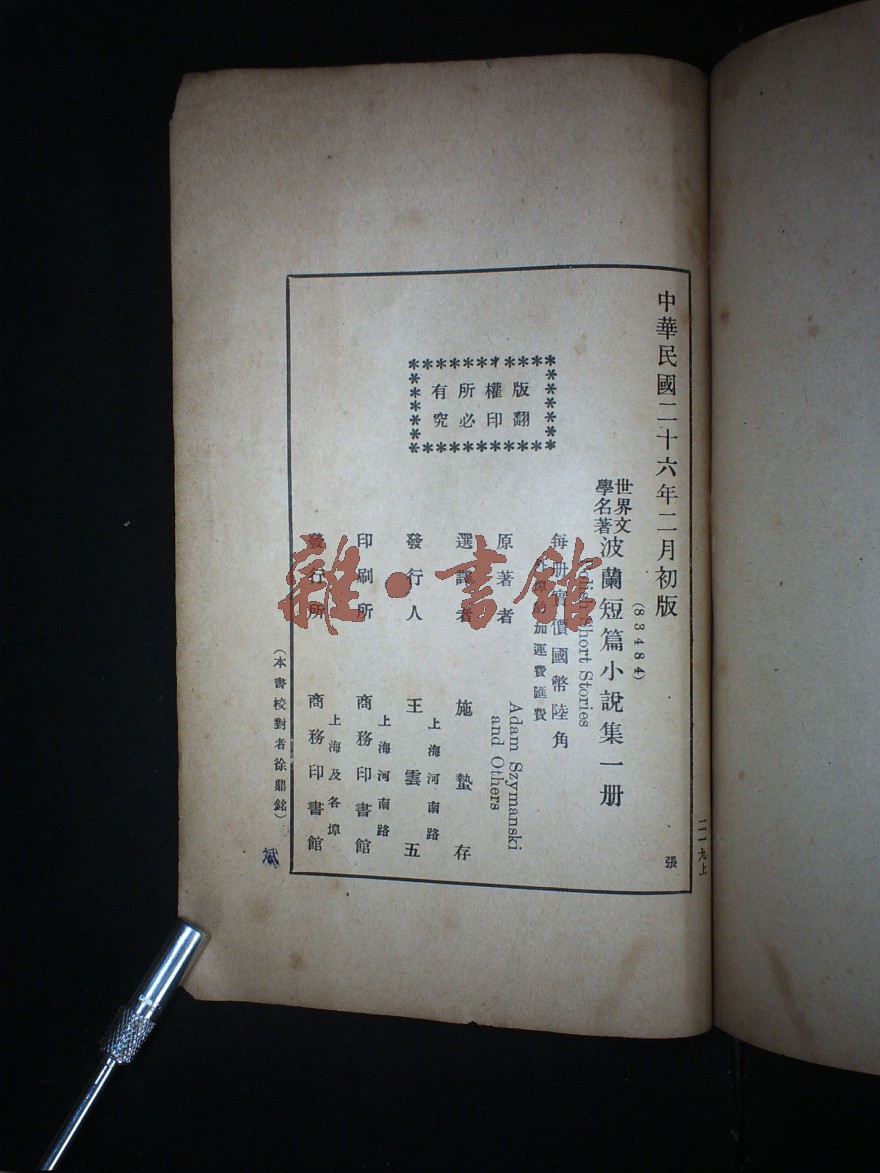 中華民國二十六年二月初版
(83484)
世界文學名著
波蘭短篇小說集一册
Polish Short Stories
每册實價國幣陸角
外埠酌加運費匯費
原著者 Adam Szymanski and Others
選譯者 施蟄存
發行人 王雲五
上海河南路
印刷所 商務印書館
上海河南路
發行所 商務印書館
上海及各埠
版權所有
翻印必究
(本書校對者徐鼎銘)
二一九上
張
斌
雜·書館